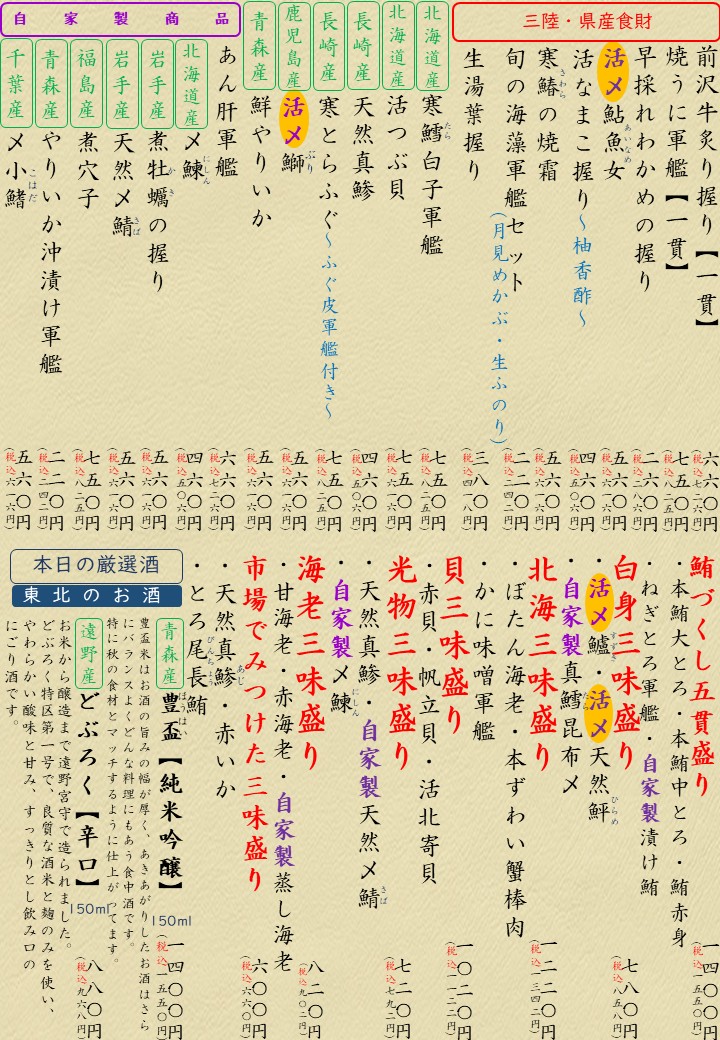 三陸・県産食財
前沢牛炙り握り【一貫】
六六〇円
(税込七二六円)
焼うに軍艦【一貫】
七五〇円
(税込八二五円)
早採れわかめの握り
二六〇円
(税込二八六円)
活〆鮎魚女
あいなめ
五六〇円
(税込六一六円)
活なまこ握り～柚香酢～
四六〇円
(税込五〇六円)
寒鰆の焼霜
さわら
五六〇円
(税込六一六円)
旬の海藻軍艦セット
(月見めかぶ・生ふのり)
二二〇円
(税込二四二円)
生湯葉握り
三八〇円
(税込四一八円)
北海道産
寒鱈白子軍艦
たら
七五〇円
(税込八二五円)
北海道産
活つぶ貝
五六〇円
(税込六一六円)
長崎産
天然真鯵
四六〇円
(税込五〇六円)
長崎産
寒とらふぐ～ふぐ皮軍艦付き～
七五〇円
(税込八二五円)
鹿児島産
活〆鰤
ぶり
五六〇円
(税込六一六円)
青森産
鮮やりいか
五六〇円
(税込六一六円)
自家製商品
あん肝軍艦
六六〇円
(税込七二六円)
北海道産
〆鰊
にしん
四六〇円
(税込五〇六円)
岩手産
煮牡蠣の握り
かき
五六〇円
(税込六一六円)
岩手産
天然〆鯖
さば
五六〇円
(税込六一六円)
福島産
煮穴子
七五〇円
(税込八二五円)
青森産
やりいか沖漬け軍艦
二二〇円
(税込二四二円)
千葉産
〆小鰭
こはだ
五六〇円
(税込六一六円)
鮪づくし五貫盛り
・本鮪大とろ・本鮪中とろ・鮪赤身
・ねぎとろ軍艦・自家製漬け鮪
一四〇〇円
(税込一五五〇円)
白身三味盛り
・活〆鱸・活〆天然鮃
すずき
ひらめ
・自家製真鱈昆布〆
たら
七八〇円
(税込八五八円)
北海三味盛り
・ぼたん海老・本ずわい蟹棒肉
・かに味噌軍艦
一二二〇円
(税込一三四二円)
貝三味盛り
・赤貝・帆立貝・活北寄貝
一〇二〇円
(税込一一二二円)
光物三味盛り
・天然真鯵・自家製天然〆鯖
さば
・自家製〆鰊
にしん
七二〇円
(税込七九二円)
海老三味盛り
・甘海老・赤海老・自家製蒸し海老
八二〇円
(税込九〇二円)
市場でみつけた三味盛り
・天然真鯵・赤いか
あじ
・とろ尾長鮪
びんちょう
六〇〇円
(税込六六〇円)
本日の厳選酒
東北のお酒
青森産
豊盃【純米吟醸】
ほうはい
150ml
一四〇〇円
(税込一五五〇円)
豊盃米はお酒の旨みの幅が厚く、あきあがりしたお酒はさら
にバランスよくどんな料理にもあう食中酒です。
特に秋の食材とマッチするように仕上がってます。
遠野産
どぶろく【辛口】
150ml
八八〇円
(税込九六八円)
お米から醸造まで遠野宮守で造られました。
どぶろく特区第一号で、良質な酒米と麹のみを使い、
やわらかい酸味と甘み、すっきりとし飲み口の
にごり酒です。